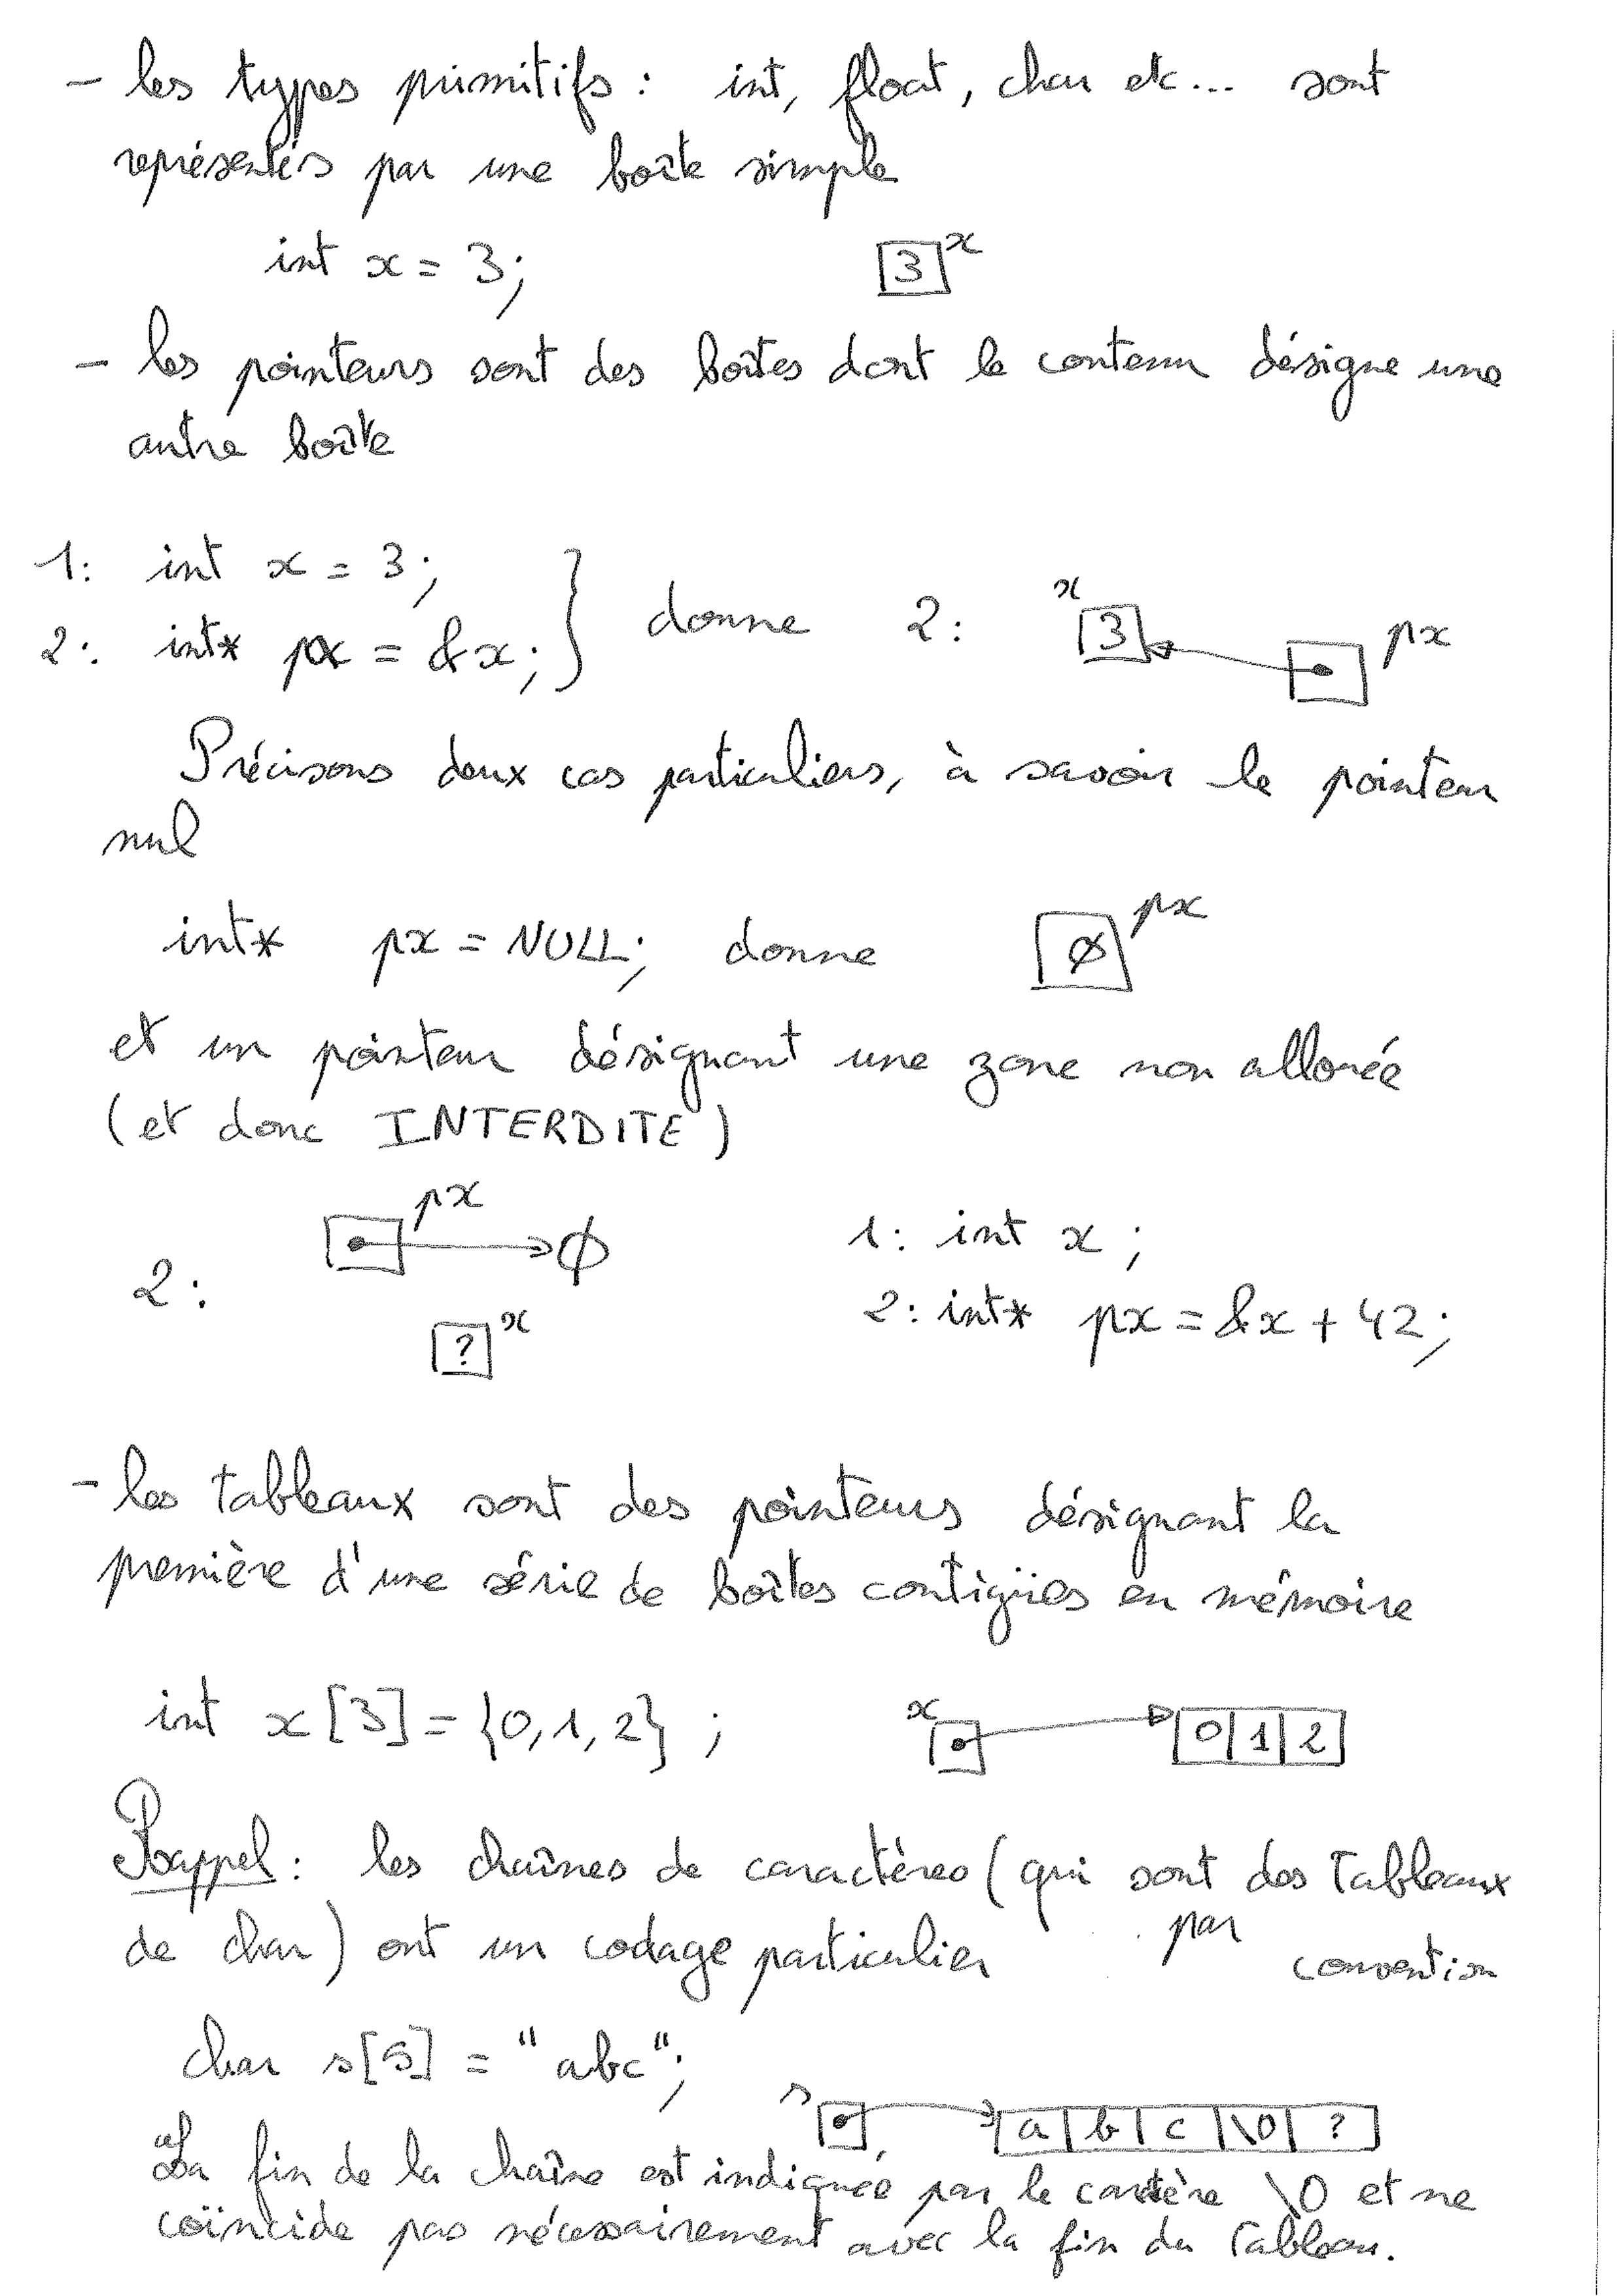 - les types primitifs : int, float, char etc... sont
représentés par une boîte simple
int x = 3; 3 x
- les pointeurs sont des boîtes dont le contenu désigne une
autre boîte
1: int x = 3;
2: int* px = &x; } donne 2: x 3 px
Précisons deux cas particuliers, à savoir le pointeur
nul
int* px = NULL; donne ∅ px
et un pointeur désignant une zone non allouée
(et donc INTERDITE)
2: px ∅ 1: int x ;
? x 2: int* px = &x + 42;
- les tableaux sont des pointeurs désignant la
première d'une série de boîtes contigües en mémoire
int x[3] = {0,1,2} ; x 0 1 2
Rappel : les chaînes de caractères (qui sont des tableaux
de char) ont un codage particulier par convention
char s[5] = "abc"; s a b c \0 ?
La fin de la chaîne est indiquée par le caractère \0 et ne
coïncide pas nécessairement avec la fin du tableau.